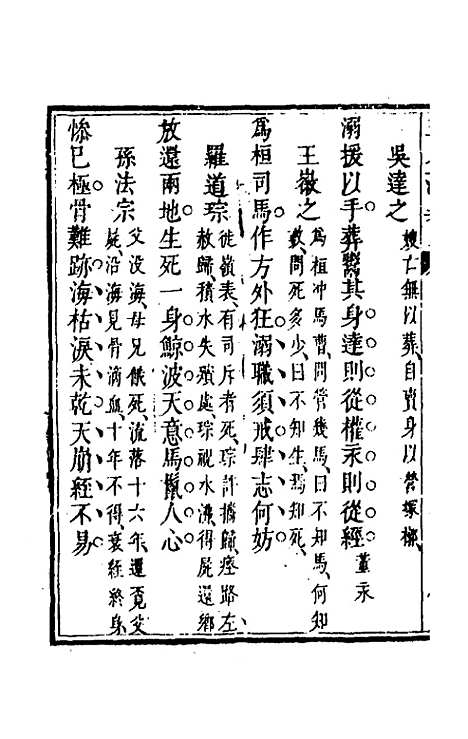 吳達之 嫂亡無以葬自賣身以營塚槨
溺援以手葬鬻其身達則從權永則從經 董永
王徽之 爲桓冲馬曹問管幾馬曰不知馬何知
數問死多少曰不知生焉知死
爲桓司馬作方外狂溺職須戒肆志何妨
羅道琮 徙嶺表有司斥者死琮許攜歸瘞路左
赦歸積水失殯處琮祝水沸得屍還鄉
放還兩地生死一身鯨波天意馬鬣人心
孫法宗 父没海母兄餓死流落十六年還覓父
屍沿海見骨滴血十年不得衰絰終身
慘已極骨難跡海枯淚未乾天崩經不易